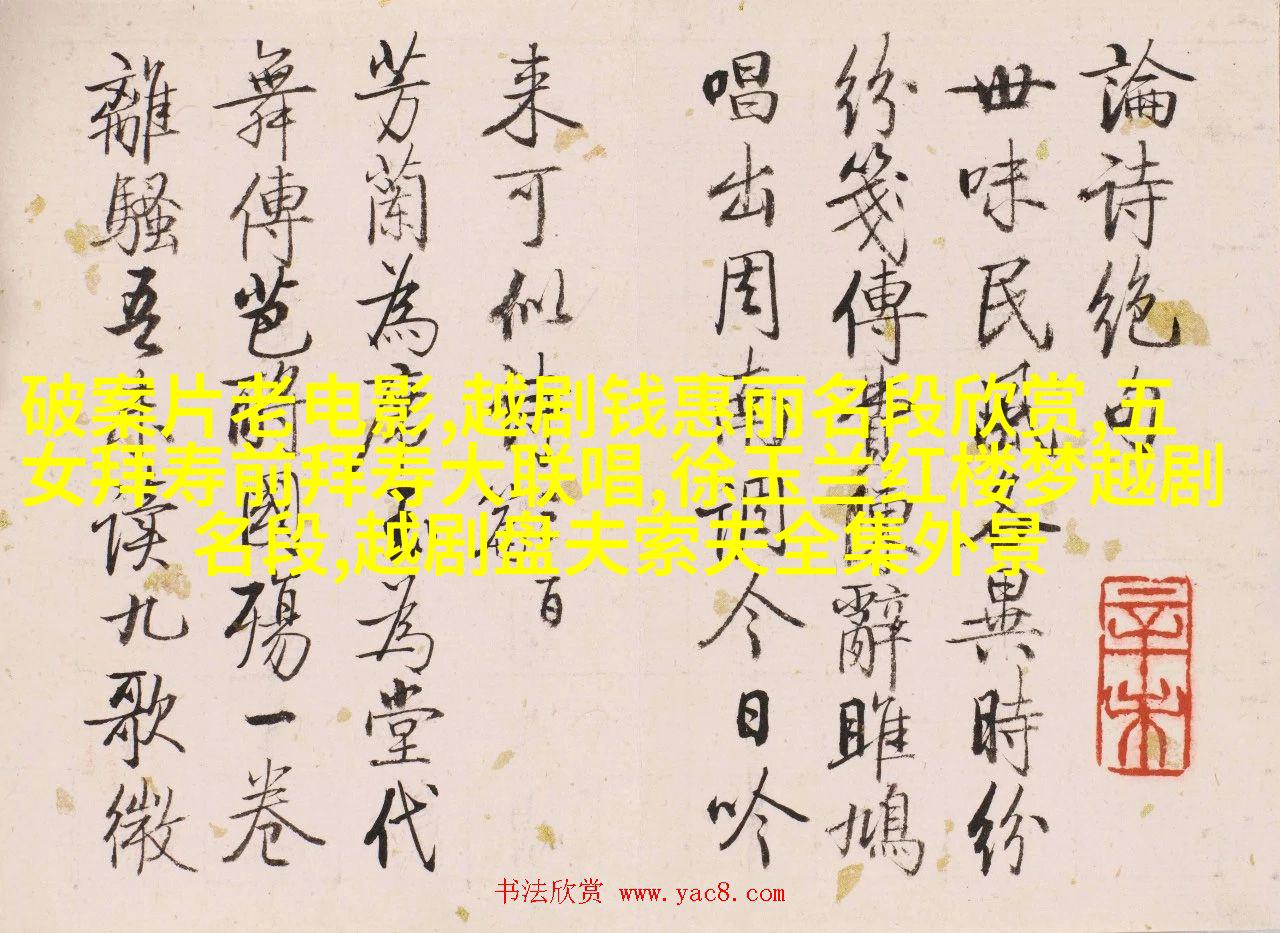 論詩絶句
世味民風各異時紛
紛箋傳費辭雎鳩
唱出周南調今日吟
来可似詩百
芳蘭為玉為堂代
舞傳芭酹國殤一卷
離騷吾未讀九歌微
辛未
破案片老电影,越剧钱惠丽名段欣赏,五
女拜寿前拜寿大联唱,徐玉兰红楼梦越剧
名段,越剧盘夫索夫全集外景
书法欣赏 www.yac8.com